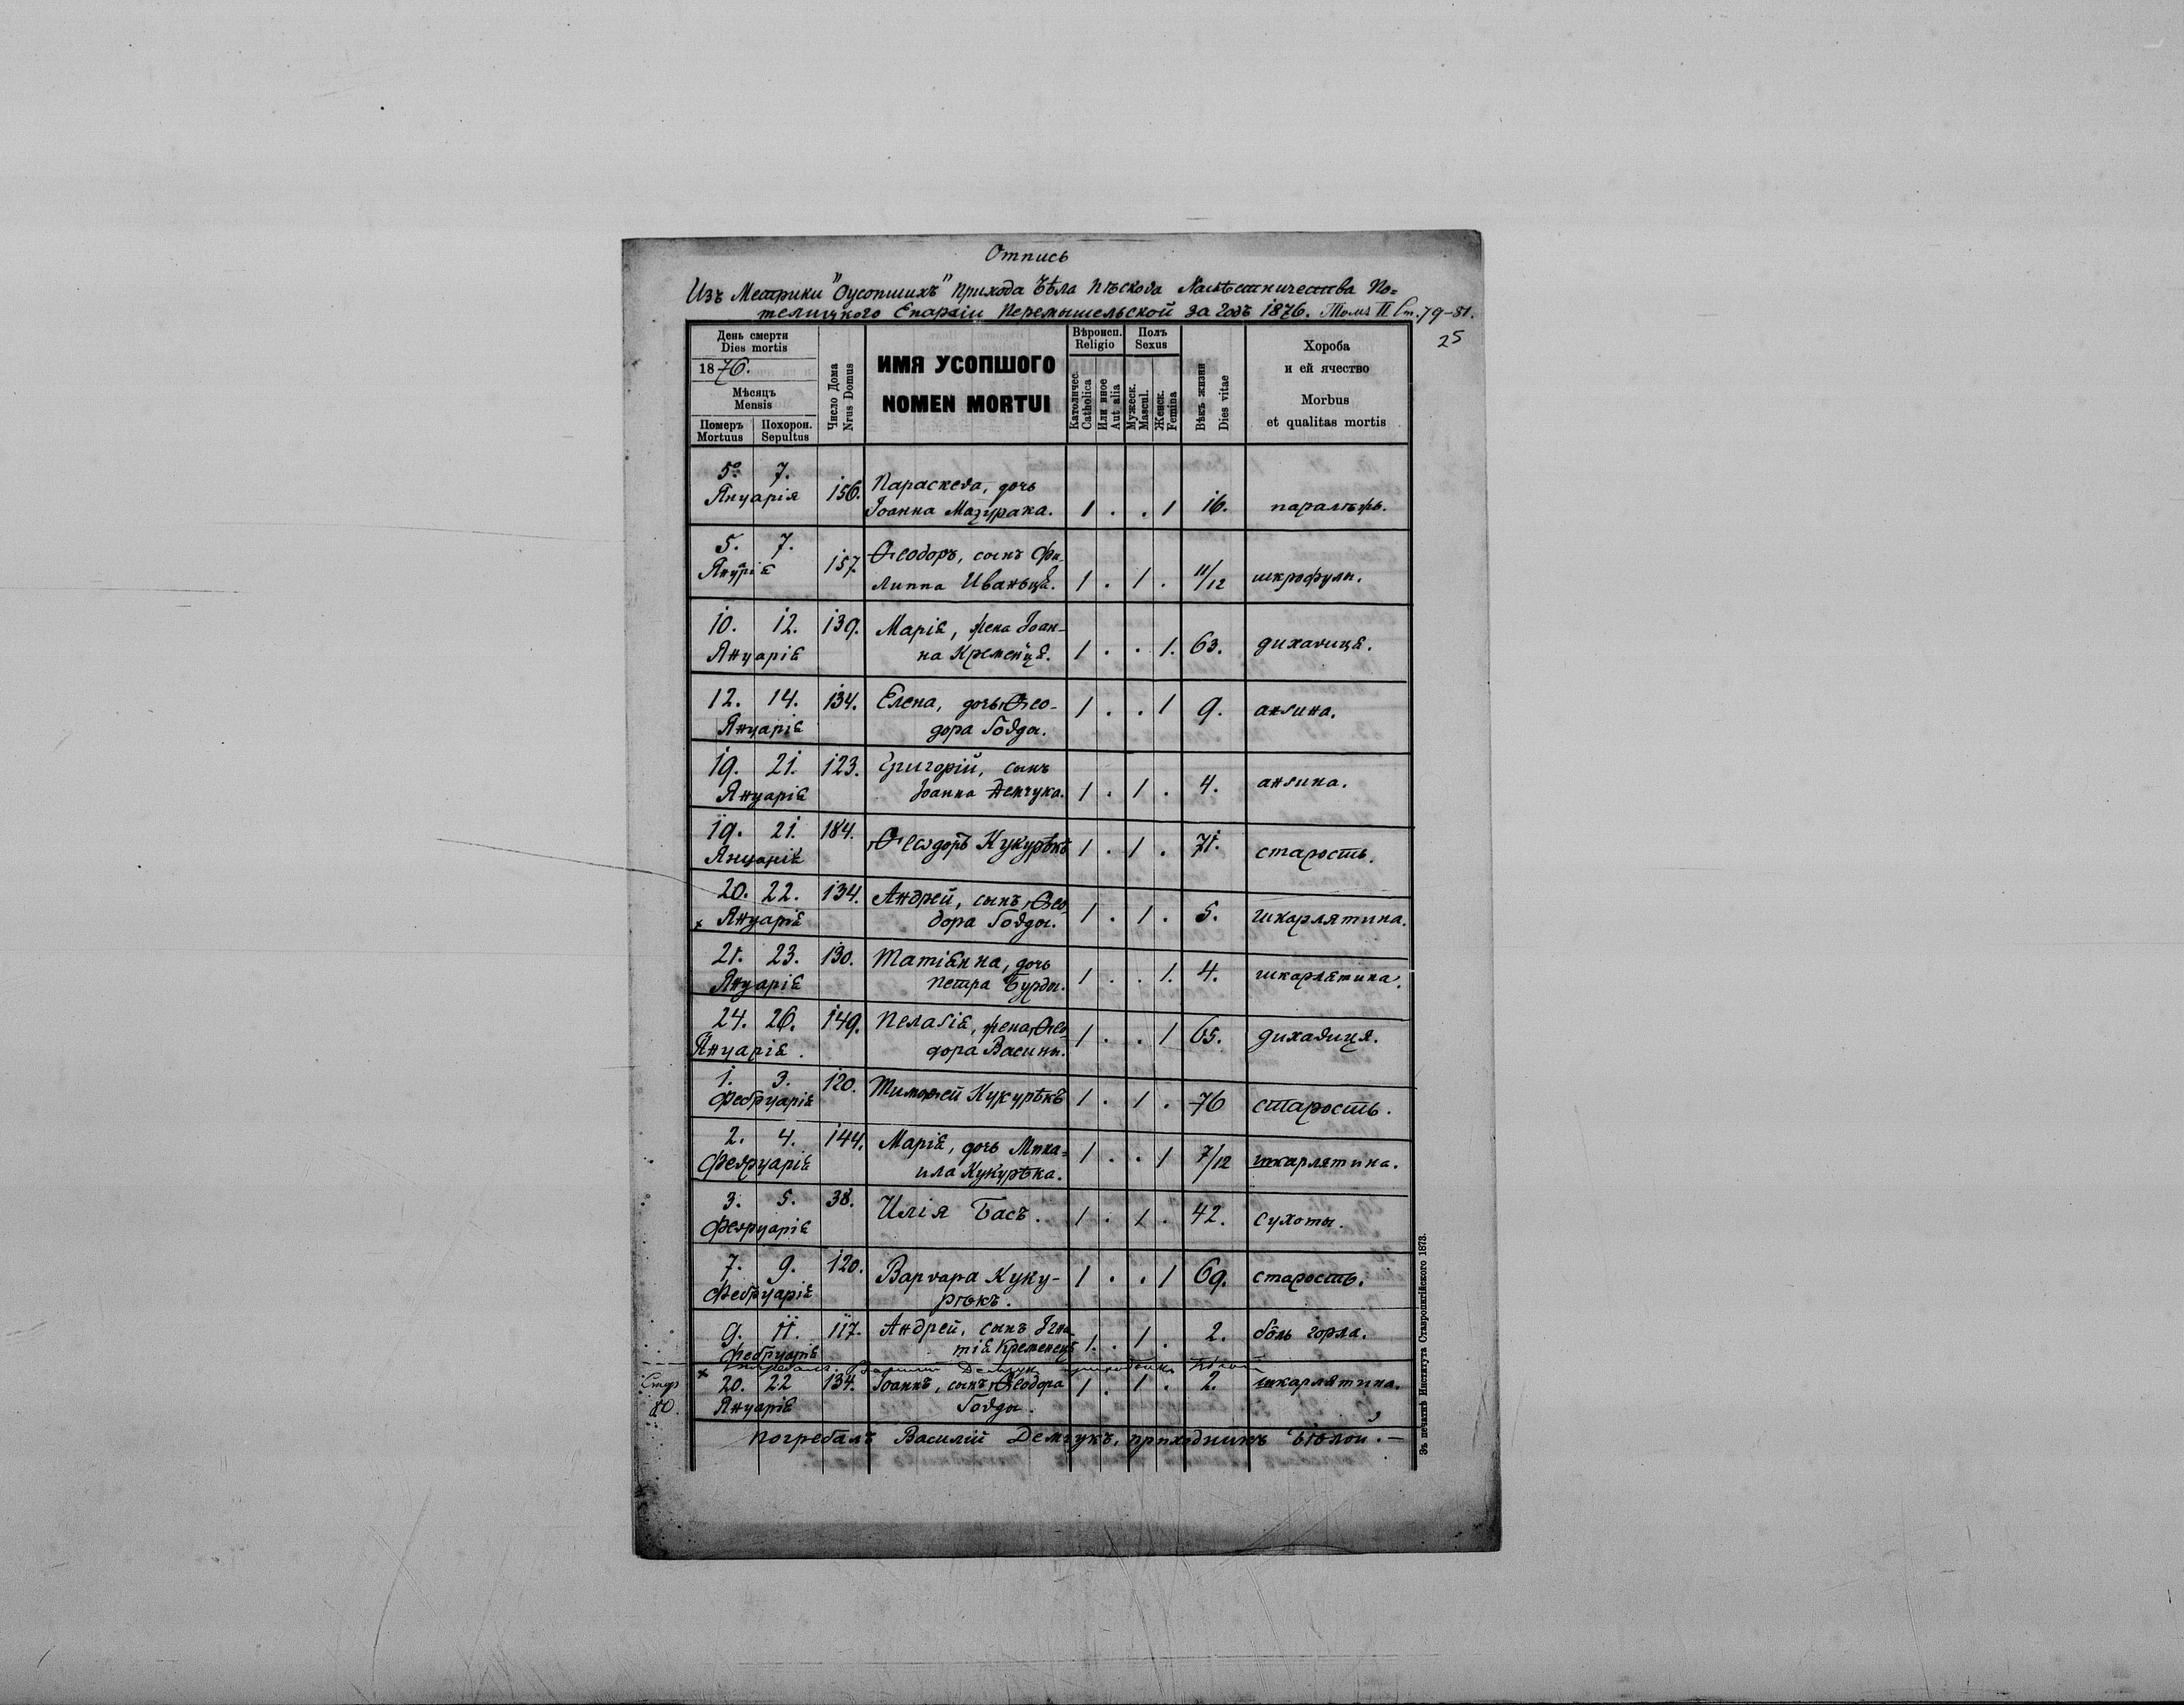 Отпись
Изъ Метрики "Оусопшихъ" прихода Бѣла Пѣскова Намѣстничества По-
телицкого Епархіи Перемышельской за годъ 1876. Томъ II Ст. 79-81.
25
День смерти
Dies mortis
1876.
Мѣсяць
Mensis
Померъ Похорон.
Mortuus Sepultus
Число Дома
Nrus Domus
ИМЯ УСОПШОГО
NOMEN MORTUI
Вѣроисп.
Religio
Католичес.
Catholica
Или иное
Aut alia
Полъ
Sexus
Мужеск.
Mascul.
Женск.
Femina
Вѣкъ жизни
Dies vitae
Хороба
и ей ячество
Morbus
et qualitas mortis
5. 7. 156. Параскева, дочь
Януарія Іоанна Мазурака. 1 . . 1 16. паралѣжъ.
5. 7. 157. Ѳеодоръ, сынъ Фи-
Януарія липпа Иваньця. 1 . 1 . 11/12 шкрофулы.
10. 12. 139. Марія, жена Іоан-
Януарія на Кременця. 1 . . 1. 63. дихавиця.
12. 14. 134. Елена, дочь Ѳео- 1 . . 1 9. ангина.
Януарія дора Говды.
19. 21. 123. Григорій, сынъ
Януарія Іоанна Демчука. 1 . 1 . 4. ангина.
19. 21. 184. Ѳеодоръ Кукурѣкъ 1 . 1 . 71. старость.
Януарія
20. 22. 134. Андрей, сынъ Ѳео-
x Януарія дора Говды. 1 . 1 . 5. шкарлятина.
21. 23. 130. Матіянна, дочь
Януарія Петра Бурды. 1 . . 1. 4. шкарлятина.
24. 26. 149. Пелагія, жена Ѳео-
Януарія. дора Васины. 1 . . 1 65. дихавиця.
1. 3. 120. Тимоѳей Кукурѣкъ 1 . 1 . 76 старость.
Фебруарія
2. 4. 144. Марія, дочь Миха-
Февруарія ила Кукурѣка. 1 . . 1 7/12 шкарлятина.
3. 5. 38. Илія Басъ. 1 . 1 . 42. сухоты.
Февруарія
7. 9. 120. Варвара Куку- 1 . . 1 69. старость.
Фебруарія рѣкъ.
9. 11. 117. Андрей, сынъ Игна-
Фебруарія тія Кременець 1. . 1 . 2. боль горла.
погребалъ. Василій Демчук приходникъ Бѣлой
x
Стр
80.
20. 22 134. Іоаннъ, сынъ Ѳеодора 1 . 1 . 2. шкарлятина.
Януарія Говды.
погребалъ Василій Демчукъ, приходникъ Бѣлой. —
Зъ печатнѣ Института Ставропигійского 1873.